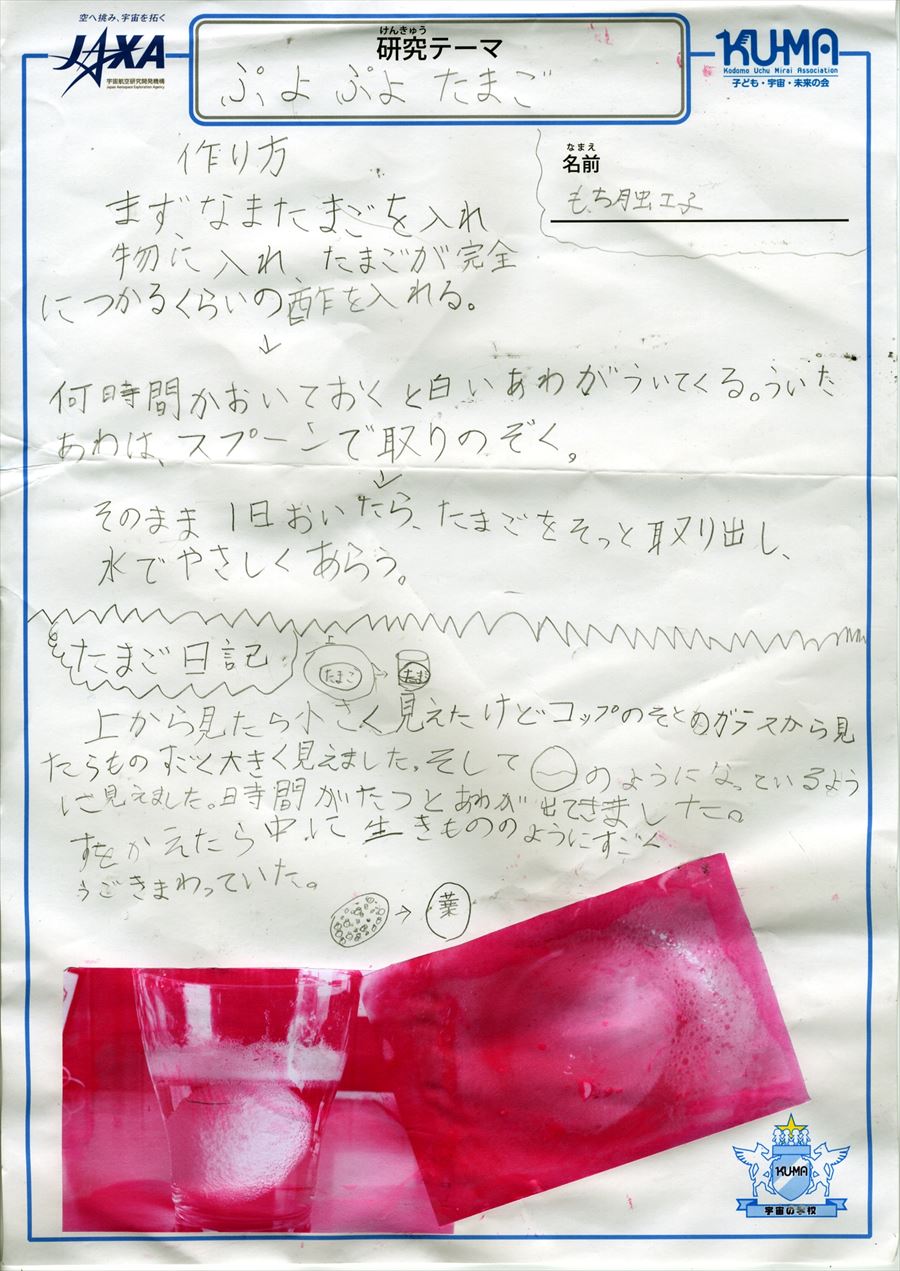 空へ挑み、宇宙を拓く
JAXA
宇宙航空研究開発機構
Japan Aerospace Exploration Agency
けんきゅう
研究テーマ
ぷよぷよたまご
KU-MA
Kodomo Uchu Mirai Association
子ども・宇宙・未来の会
なまえ
名前
もち月虹子
作り方
まず、なまたまごを入れ
物に入れ、たまごが完全
につかるくらいの酢を入れる。
↓
何時間かおいておくと白いあわがういてくる。ういた
あわは、スプーンで取りのぞく。
↓
そのまま1日おいたら、たまごをそっと取り出し、
水でやさしくあらう。
たまご日記
たまご
→
たまご
上から見たら小さく見えたけどコップのそとのガラスから見
たらものすごく大きく見えました。そして
のようになっているよう
に見えました。時間がたつとあわが出てきました。
すをかえたら中に生きもののようにすごく
うごきまわっていた。
→
葉
KU-MA
宇宙の学校